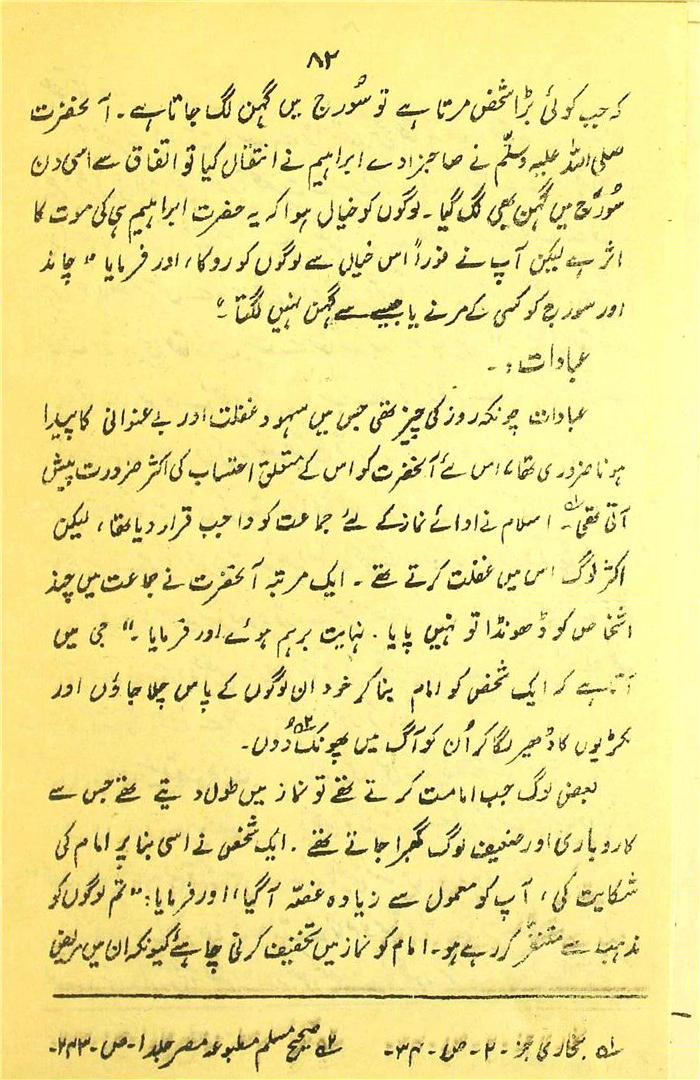 ۸۲
کہ جب کوئی بڑا شخص مرتا ہے تو سُورج میں گہن لگ جاتا ہے۔ آنحضرت
صلی اللہ علیہ وسلّم نے صاحبزادے ابراہیم نے انتقال کیا تو اتفاق سے اسی دن
سُورج میں گہن بھی لگ گیا۔ لوگوں کو خیال ہوا کہ یہ حضرت ابراہیم ہی کی موت کا
اثر ہے لیکن آپ نے فوراً اس خیال سے لوگوں کو روکا، اور فرمایا " چاند
اور سورج کو کسی کے مرنے یا جینے سے گہن نہیں لگتا"۔
عبادات :۔
عبادات چونکہ روز کی چیز تھی جس میں سہو و غفلت اور بے عنوانی کا پیدا
ہونا ضروری تھا، اس لئے آنحضرت کو اس کے متعلق احتساب کی اکثر ضرورت پیش
آتی تھی۔ ۱؎ اسلام نے ادائے نماز کے لئے جماعت کو واجب قرار دیا تھا، لیکن
اکثر لوگ اس میں غفلت کرتے تھے۔ ایک مرتبہ آنحضرت نے جماعت میں چند
اشخاص کو ڈھونڈا تو نہیں پایا۔ نہایت برہم ہوئے اور فرمایا۔ " جی میں
آتا ہے کہ ایک شخص کو امام بنا کر خود ان لوگوں کے پاس چلا جاؤں اور
لکڑیوں کا ڈھیر لگا کر اُن کو آگ میں پھونک ۲؎ دُوں۔
بعض لوگ جب امامت کرتے تھے تو نماز میں طول دیتے تھے جس سے
کاروباری اور ضعیف لوگ گھبرا جاتے تھے۔ ایک شخص نے اسی بنا پر امام کی
شکایت کی، آپ کو معمول سے زیادہ غصّہ آگیا، اور فرمایا: " تم لوگوں کو
مذہب سے متنفّر کر رہے ہو۔ امام کو نماز میں تخفیف کرنی چاہئے کیونکہ ان میں مریض
۱؎ بخاری جز۔ ۲۔ ص۔ ۳۴۔ ۲؎ صحیح مسلم مطبوعہ مصر جلد ۱۔ ص۔ ۲۴۳۔